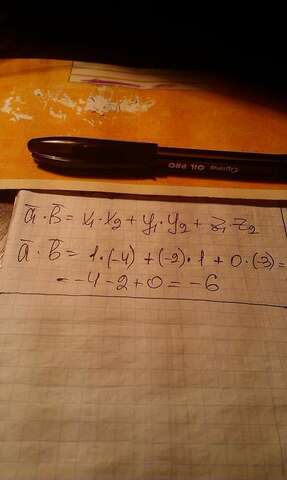 Optima OIL PRO
a̅ · b̅ = x₁·x₂ + y₁·y₂ + z₁·z₂
a̅ · b̅ = 1·(-4) + (-2)·1 + 0·(-3) =
= -4 - 2 + 0 = -6